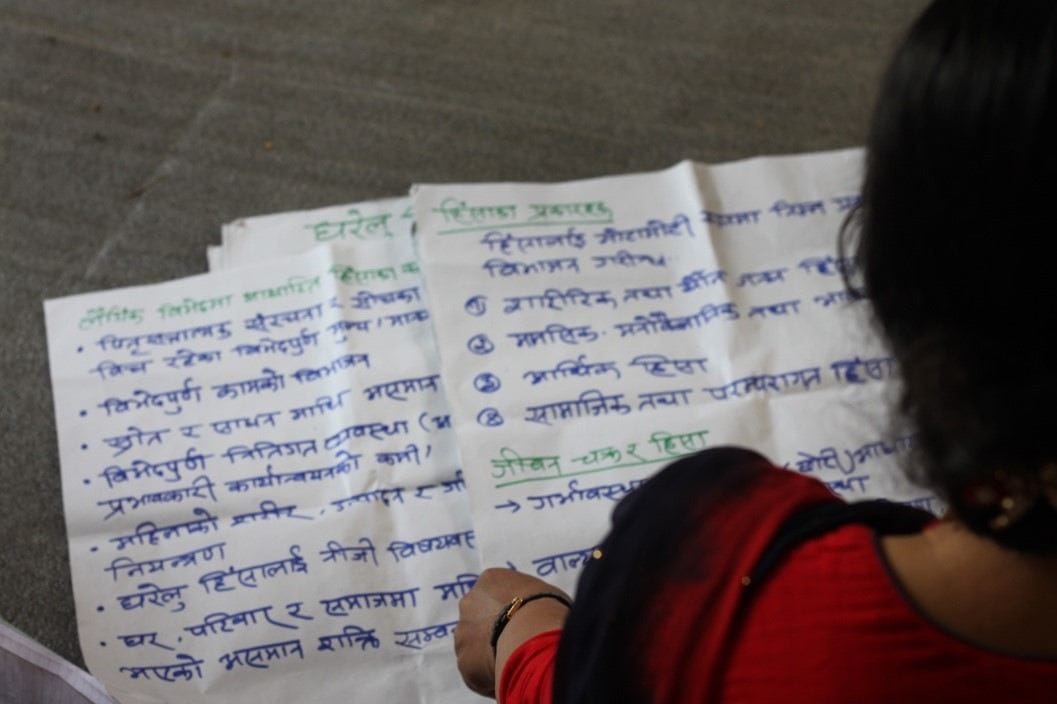 घरेलु
लैंगिक विभेदमा आधारित हिंसाका
पितृसत्तात्मक संरचना र सोचका
बिच रहेका विभेदपुर्ण मुल्य/मान्य
विभेदपुर्ण कामको विभाजन
स्रोत र साधन माथि असमान
विभेदपुर्ण नितिगत व्यवस्था (
प्रभावकारी कार्यान्वयनको कमी)
महिलाको शरीर, उत्पादन र
नियन्त्रण
घरेलु हिंसालाई नीजी विषयवस्
घर, परिवार र समाजमा महि
भएको असमान शक्ति सम्ब
हिंसाका प्रकारहरु
हिंसालाई मोटामोटी रुपमा निम्न
विभाजन गरीन्छ
① शारीरिक तथा यौन जन्य हिं
② मानसिक, मनोवैज्ञानिक तथा
③ आर्थिक हिंसा
④ सामाजिक तथा परम्परागत हिंसा
जीवन चक्र र हिंसा
→ गर्भावस्था